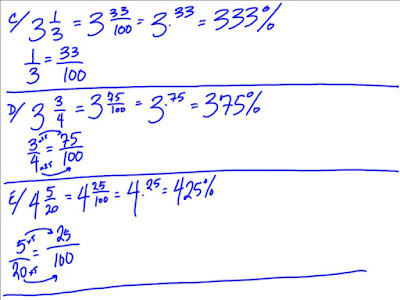 C/ 3 1/3 = 3 33/100 = 3.33 = 333%
1/3 = 33/100
D/ 3 3/4 = 3 75/100 = 3.75 = 375%
3/4 = 75/100
×25
×25
E/ 4 5/20 = 4 25/100 = 4.25 = 425%
5/20 = 25/100
×5
×5